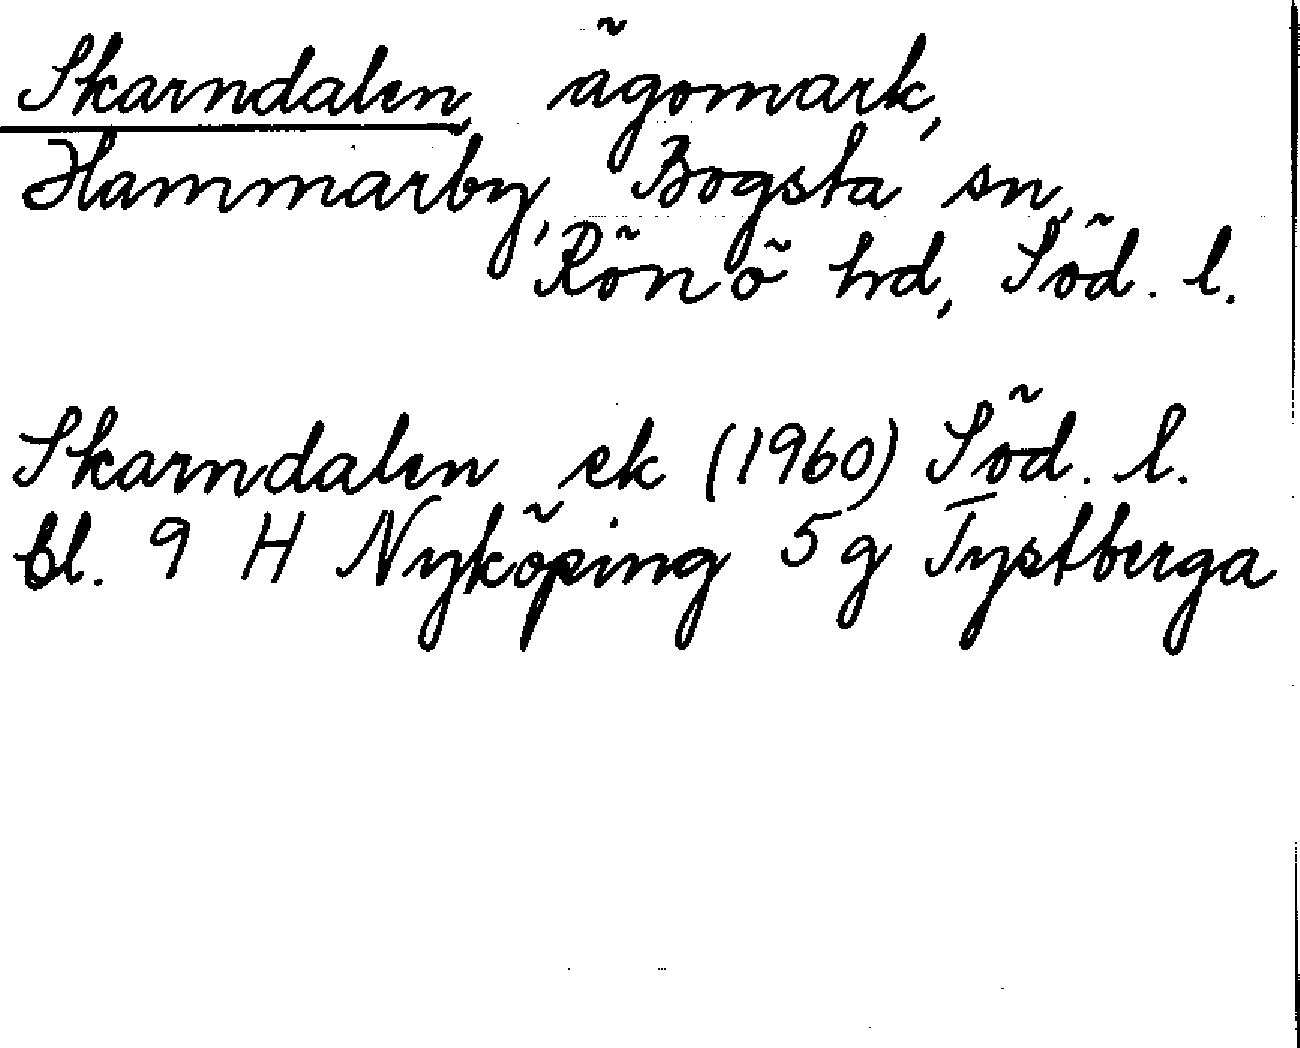 Skarndalen, ägomark,
Hammarby, Bogsta sn,
Rönö hd, Söd. l.
Skarndalen ek (1960) Söd. l.
bl. 9 H Nyköping 5 g Tystberga